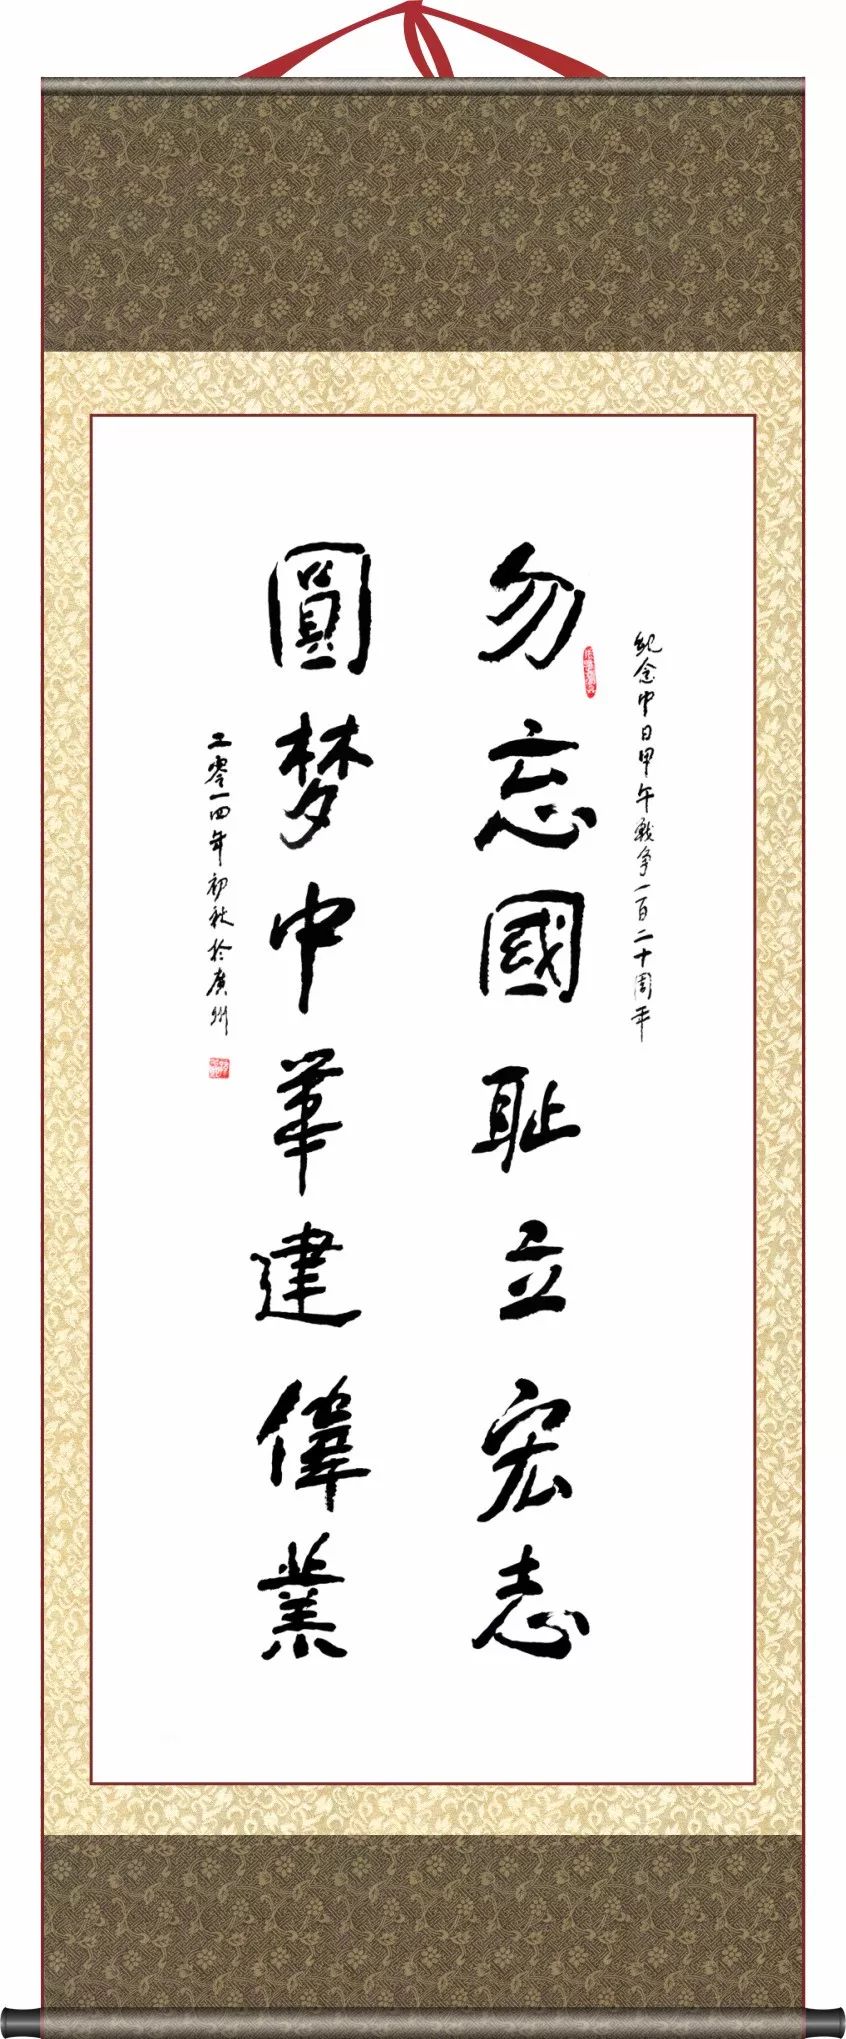 紀念中日甲午戰争一百二十周年
勿忘國耻立宏志
圓梦中華建偉業
二零一四年初秋於廣州